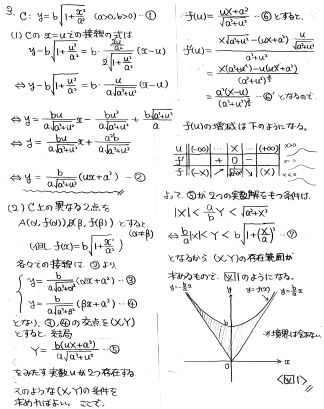 3. C: y=b√(1+x²/a²) (a>0, b>0) …①
(1) Cの x=u での接線の式は
y-b√(1+u²/a²) = b・(2u/a²)/(2√(1+u²/a²)) (x-u)
⇔ y-b√(1+u²/a²) = b・u/(a√(a²+u²)) (x-u)
⇔ y = bu/(a√(a²+u²)) x - bu²/(a√(a²+u²)) + b√(a²+u²)/a
⇔ y = bu/(a√(a²+u²)) x + a²b/(a√(a²+u²))
⇔ y = b/(a√(a²+u²)) (ux+a²) …②
(2) C上の異なる2点を
A(α, f(α)), B(β, f(β)) とすると
(但し f(x)=b√(1+x²/a²)) (α≠β)
各々での接線は ②より、
y = b/(a√(a²+α²)) (αx+a²) …③
y = b/(a√(a²+β²)) (βx+a²) …④
となり、③,④の交点を(X,Y)
とすると、結局
Y = b(uX+a²)/(a√(a²+u²)) …⑤
をみたす実数uが2つ存在する
そのような(X,Y)の条件を
求めればよい。ここで、
f(u) = (uX+a²)/√(a²+u²) …⑥ とすると、
f'(u) = (X√(a²+u²) - (uX+a²) u/√(a²+u²))/(a²+u²)
= (X(a²+u²)-u(uX+a²))/(a²+u²)^(3/2)
= a²(X-u)/(a²+u²)^(3/2) …⑥' となるので
f(u)の増減は下のようになる。
u (-∞) … X … (+∞)
f' + 0 -
f (-X) ↗ √(a²+X²) ↘ (X)
よって、⑤が2つの実数解をもつ条件は
|X| < a/b Y < √(a²+X²)
⇔ b/a |X| < Y < b√(1+(X/a)²) …⑦
となるから (X,Y)の存在範囲が
求めるもので、図1のようになる。
y=-b/a x y y=f(x) y=b/a x
b
※境界は含まない
0 x
<図1>